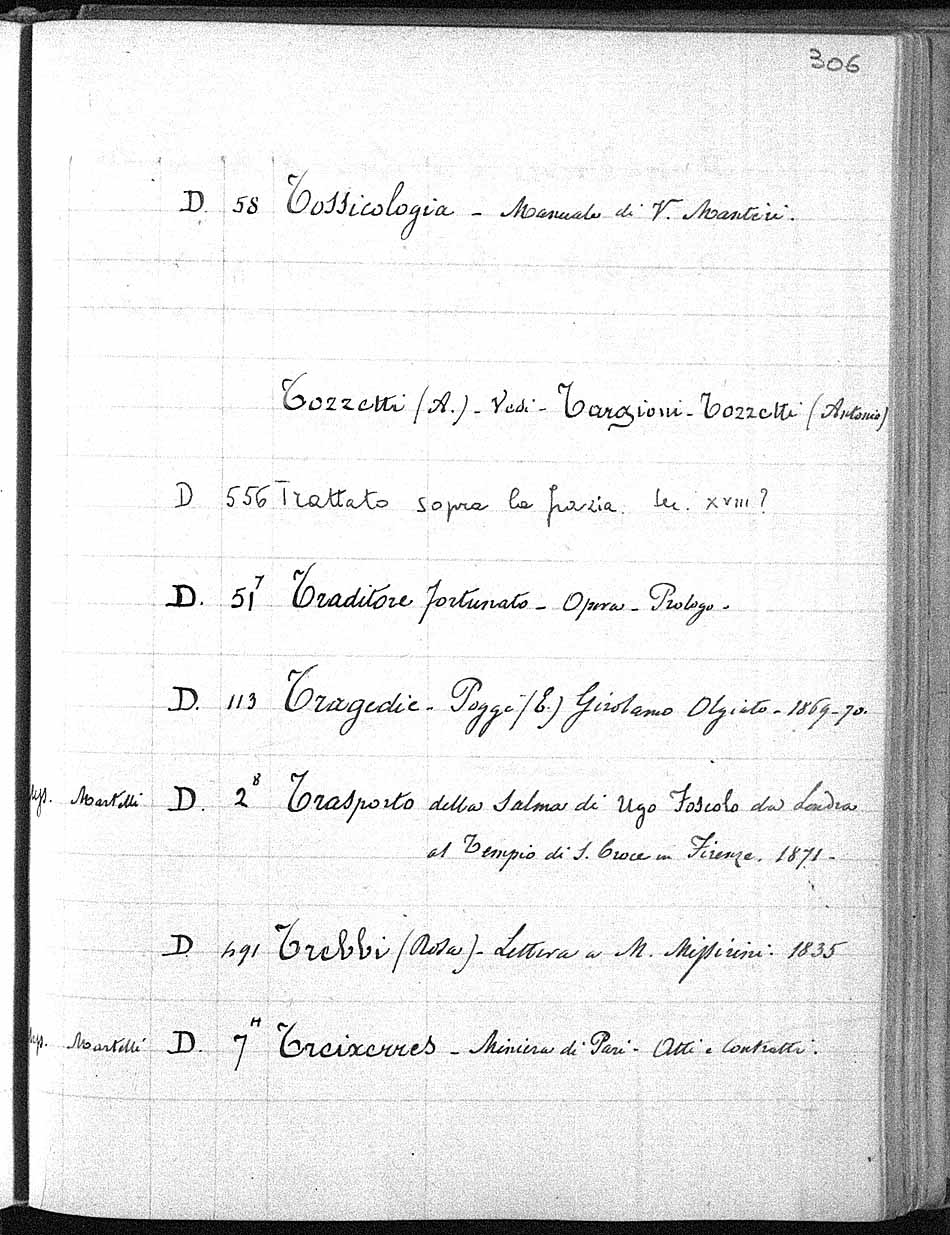 306
D. 58 Tossicologia - Manuale di V. Manteri.
Tozzetti (A.) - Vedi - Targioni-Tozzetti (Antonio)
D 556 Trattato sopra la grazia. Sec. XVIII?
D. 51⁷ Traditore fortunato - Opera - Prologo -
D. 113 Tragedie - Poggi (E.) Girolamo Olgiato - 1869-70.
Martelli D. 2⁸ Trasporto della Salma di Ugo Foscolo da Londra
al Tempio di S. Croce in Firenze. 1871 -
D 491 Trebbi (Rosa) - Lettera a M. Missirini. 1835
Martelli D. 7 Treixerres - Miniera di Pari - Atti e Contratti.